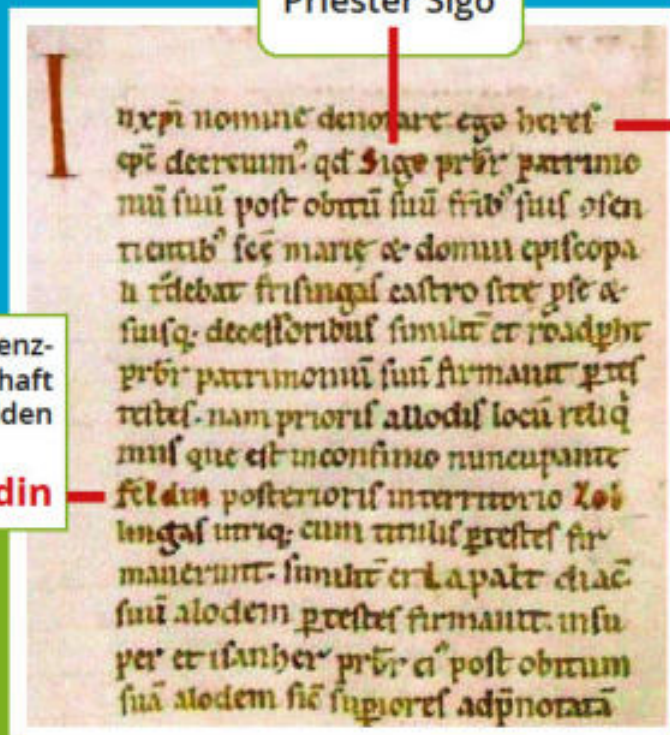 Priester Sigo
I
nxpī nomine denotare ego heres
epc̄ decreuim? qd Sigo prb̄r patrimo
niū suū post obitū suū frīb? suis ꝯsen
tientib? sc̄ę marię & domui episcopa
li
frisingas castro site & 
suisq; decessoribus similit̄ et roadpht
prb̄r patrimoniū suū firmauit ꝑ tes
testes. nam prioris allodis locū reliq̇
mus que est inconfinio nuncupante
enz-
haft
den
din
feldin posterioris interritorio Zol
lingas utriq; cum titulis ꝑtestes fir
mauerunt. similit̄ diac̄
suū alodem ꝑtestes firmauit. insu
per et isanher prb̄r post obitum
suā alodem sic̄ supiores adp̄notatā